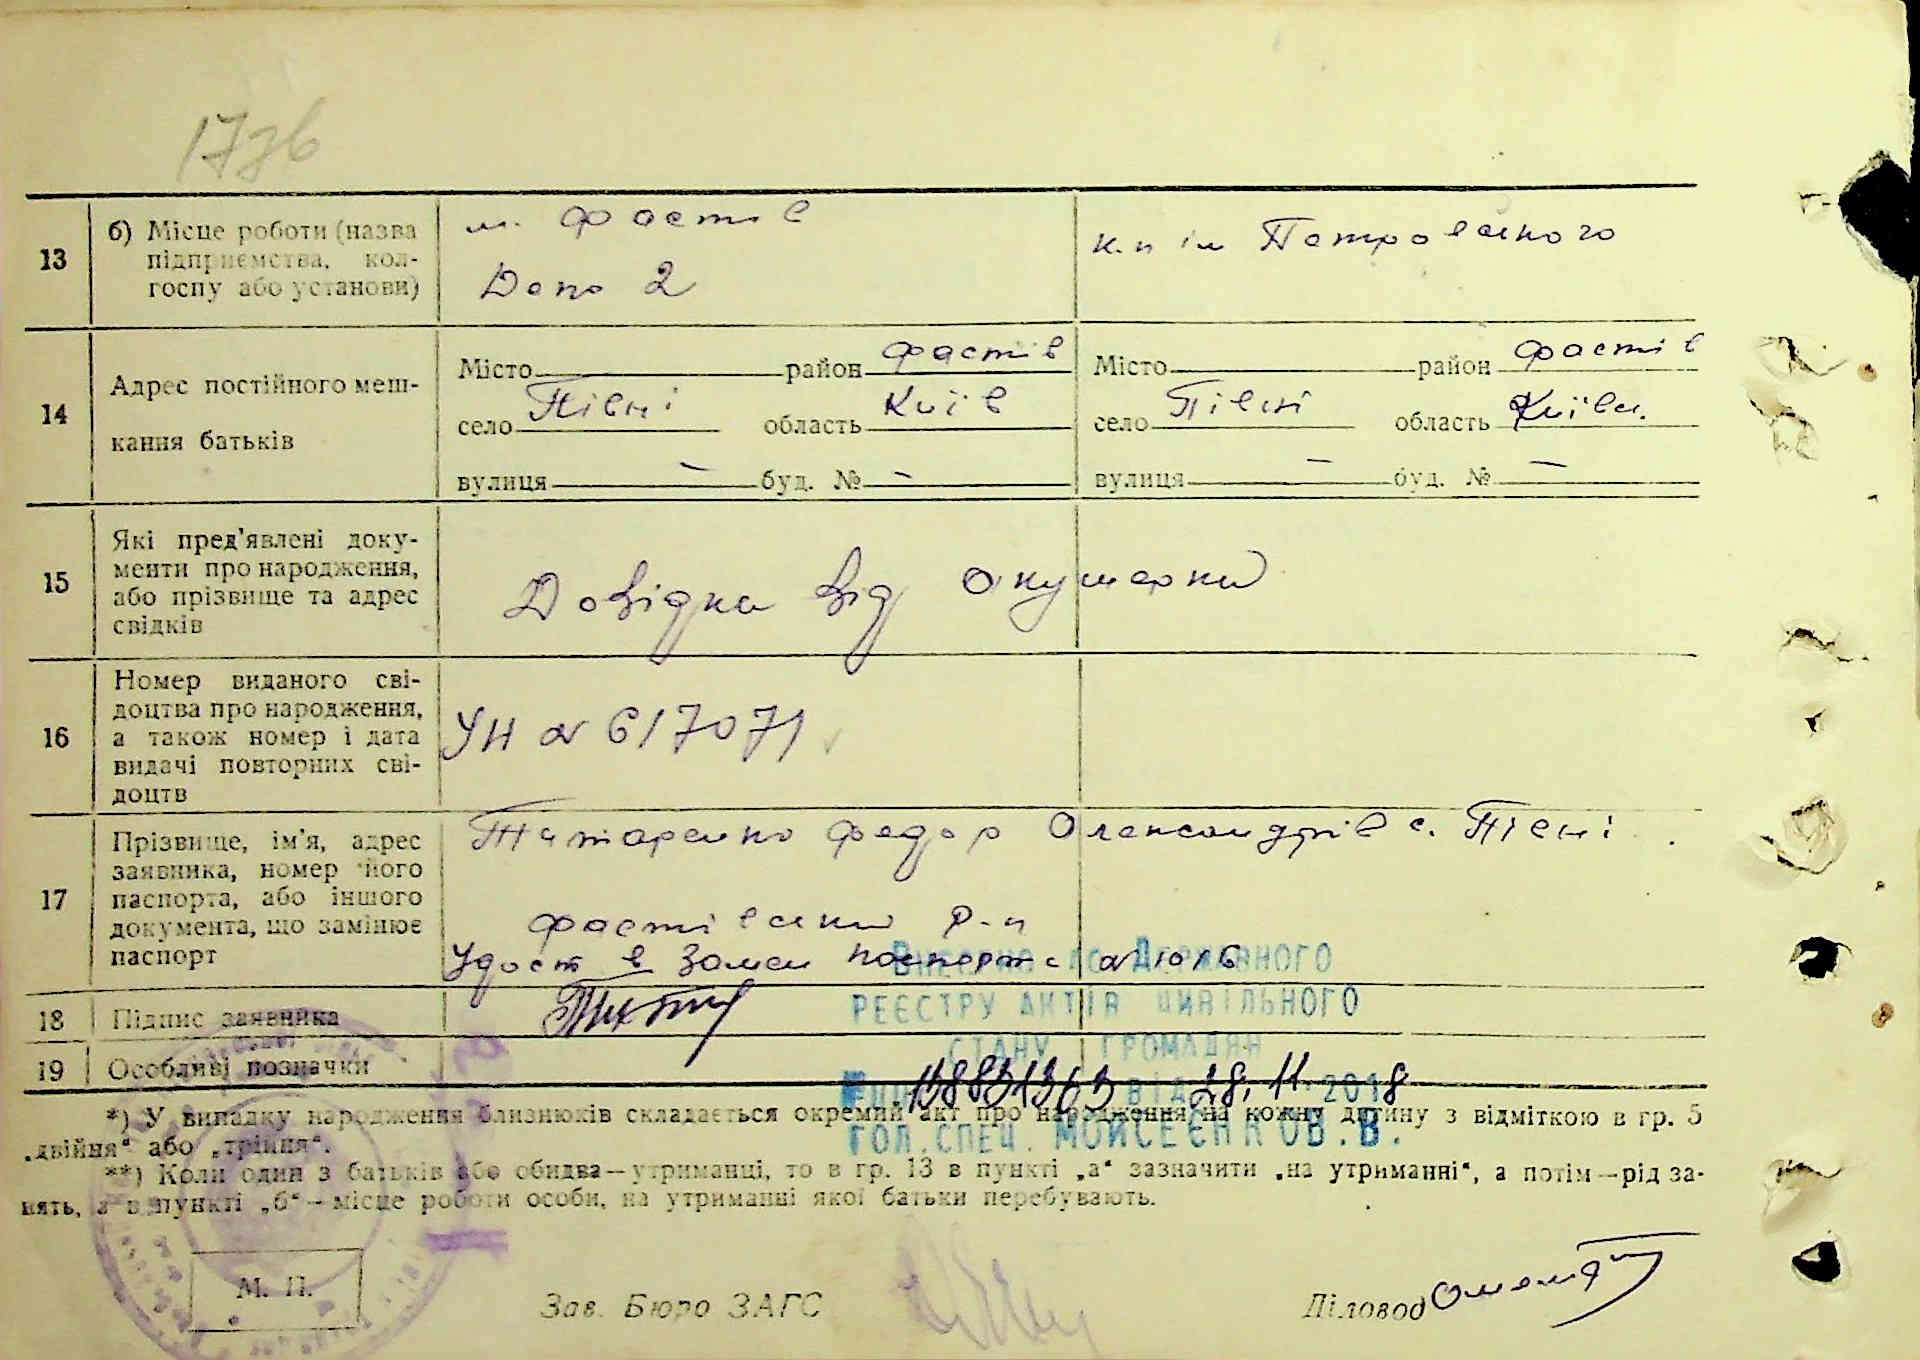 13
б) Місце роботи (назва
підприємства, кол-
госпу або установи)
м. Фастів
Депо 2
к-п ім Петровського
14
Адрес постійного меш-
кання батьків
Місто район Фастів
село Півні область Київ
вулиця — буд. № —
Місто район Фастів
село Півні область Київськ.
вулиця — буд. № —
15
Які пред'явлені доку-
менти про народження,
або прізвище та адрес
свідків
Довідка від акушерки
16
Номер виданого сві-
доцтва про народження,
а також номер і дата
видачі повторних сві-
доцтв
УН № 617071
17
Прізвище, ім'я, адрес
заявника, номер його
паспорта, або іншого
документа, що замінює
паспорт
Федор Олександрів с. Півні
Фастівськи р-н
Удост в замен паспорта №
18
Підпис заявника
19
Особливі позначки
Внесено до Державного
реєстру актів цивільного
стану громадян
від 28.11.2018
гол. спец. Мойсеєнко В.В.
*) У випадку народження близнюків складається окремий акт про народження на кожну дитину з відміткою в гр. 5
„двійня“ або „трійня“.
**) Коли один з батьків або обидва—утриманці, то в гр. 13 в пункті „а“ зазначити „на утриманні“, а потім—рід за-
нять, а в пункті „б“—місце роботи особи, на утриманні якої батьки перебувають.
М. П.
Зав. Бюро ЗАГС
Діловод